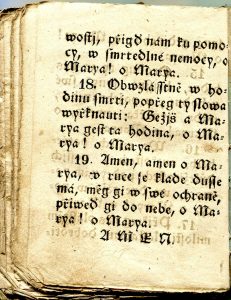 wostj, přigd nám ku pomo-
cy, w smrtedlné nemocy, o
Marya! o Marya.
18. Obwzlásstně, w ho-
dinu smrti, popřeg ty slowa
wyřknauti: Gežjš a Ma-
rya gest ta hodina, o Ma-
rya! o Marya.
19. Amen, amen o Ma-
rya, w ruce se klade dusse
má, měg gi w swé ochraně,
přiweď gi do nebe, o Ma-
rya! o Marya.
A M E N.